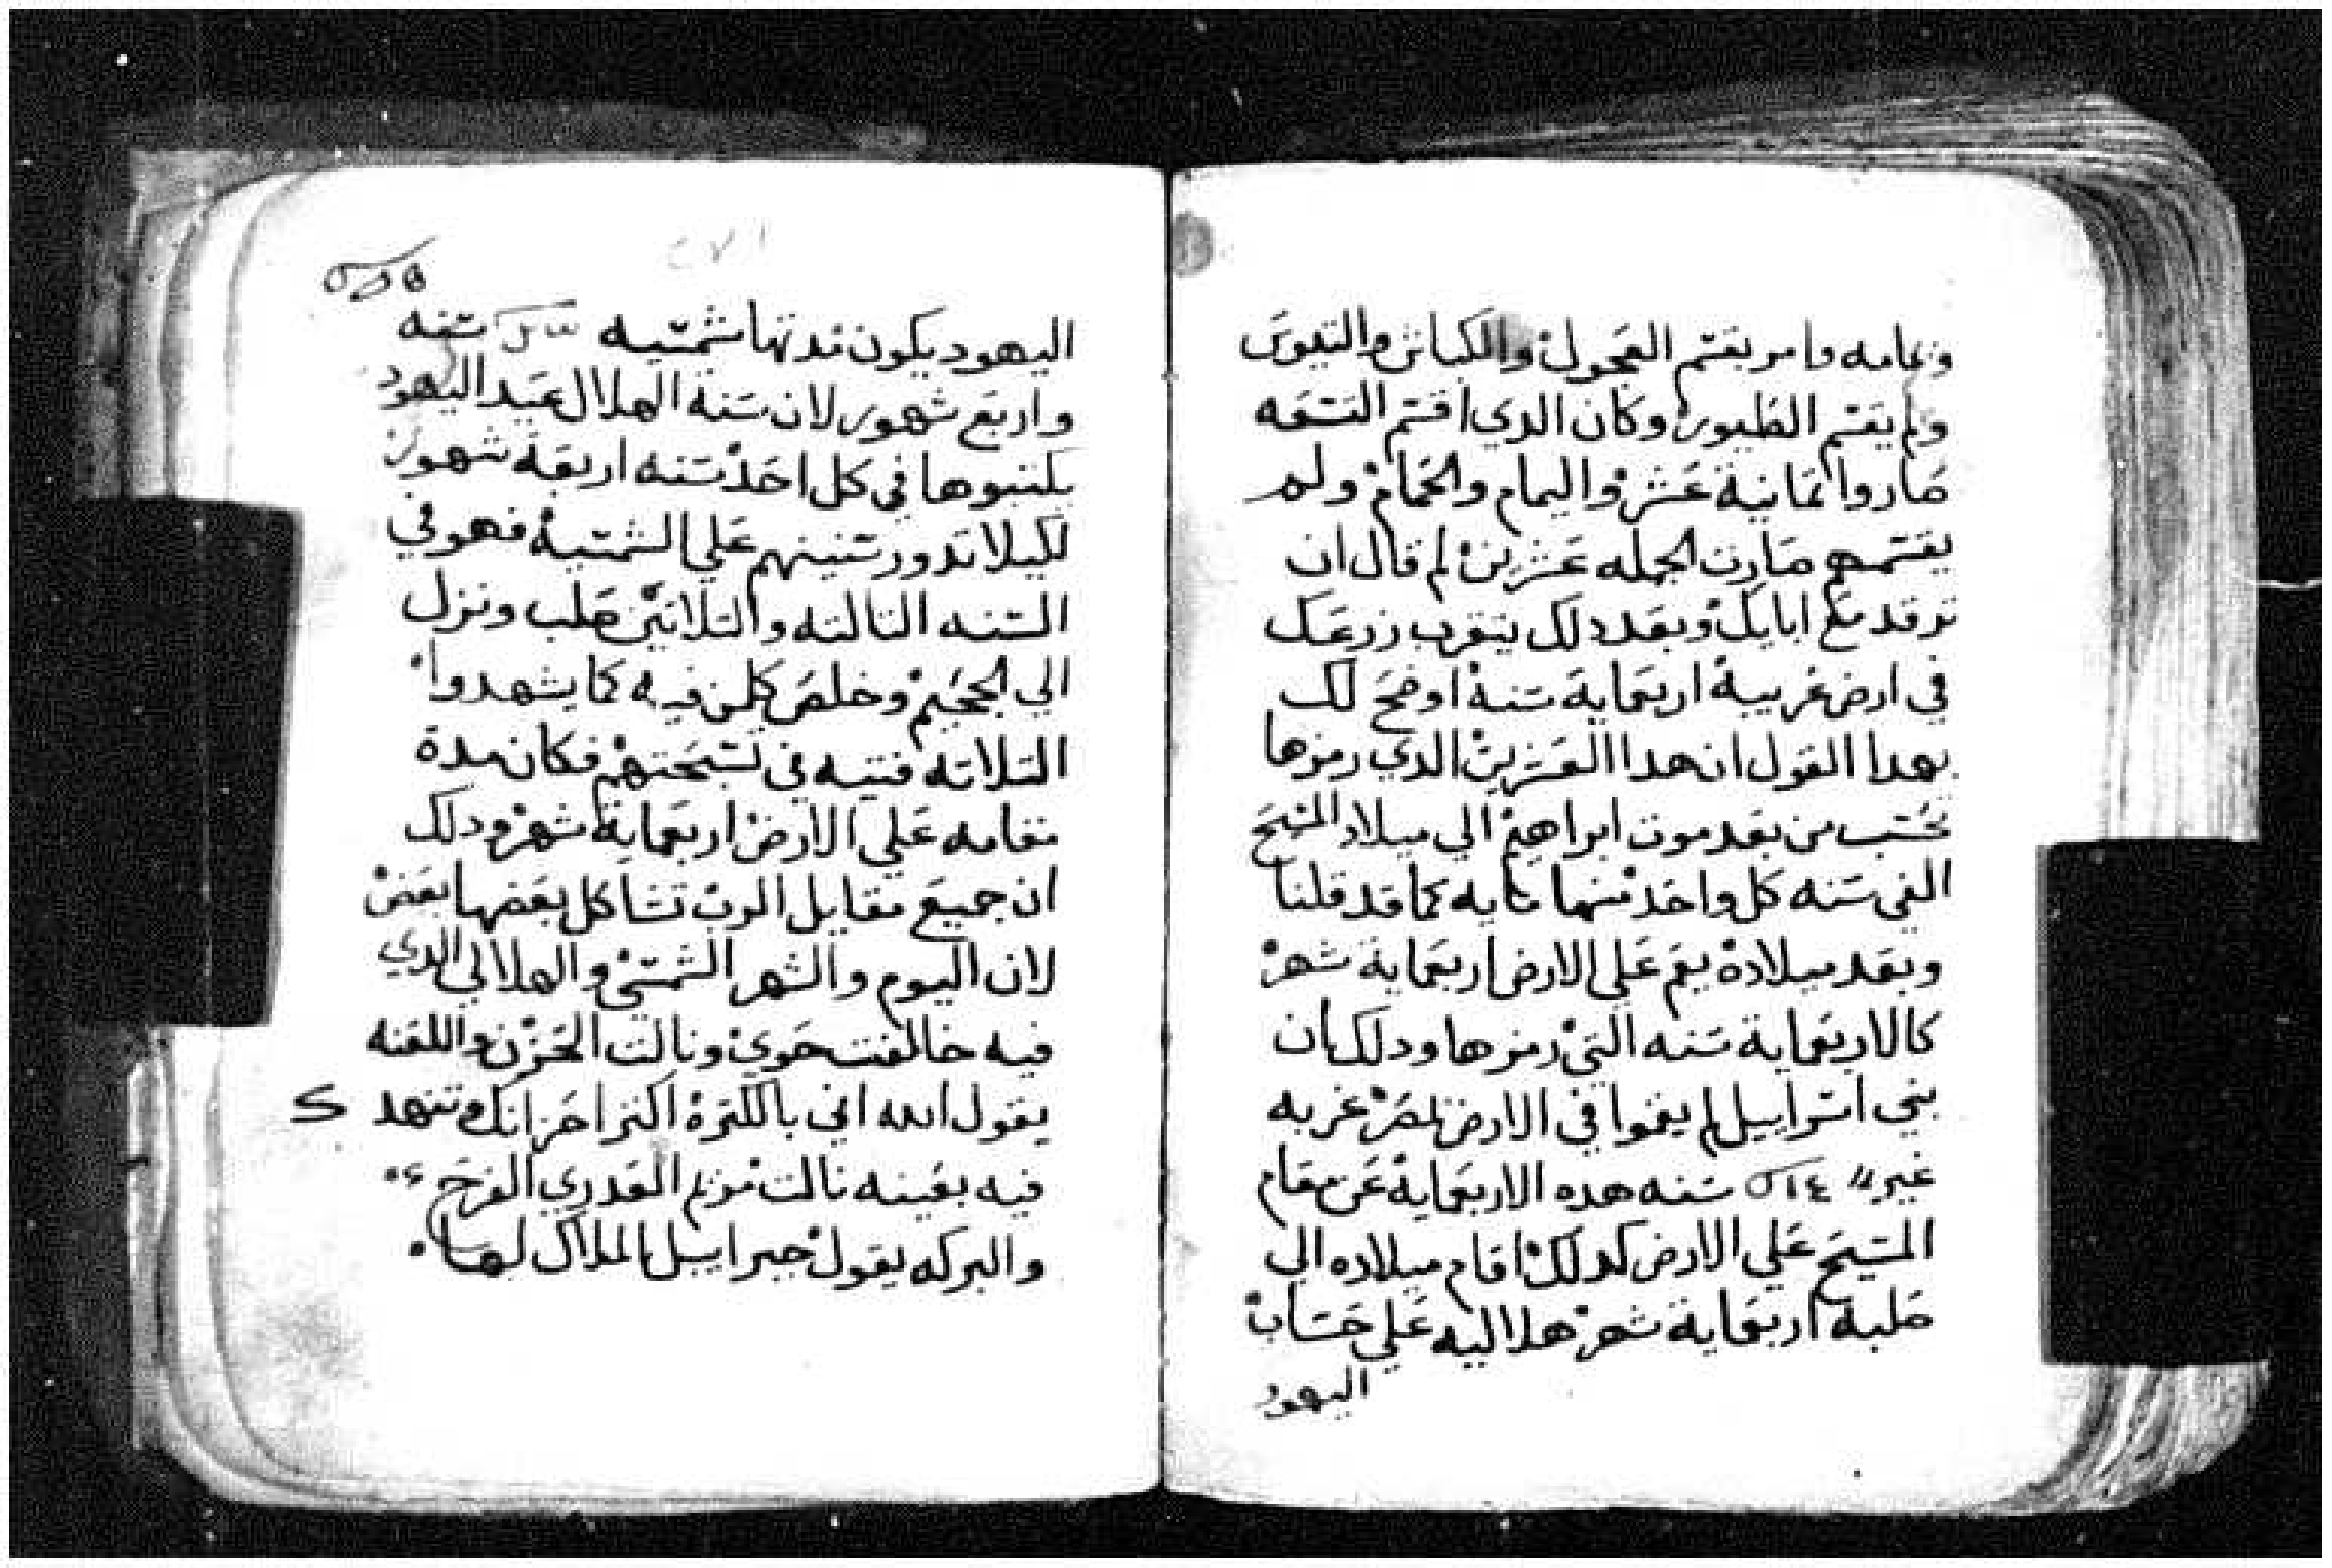 ويمامه وامر بقتم العجول والكباش والتيوس
ولم يقتم الطيور وكان الدي اقتم التسعه
صاروا تمانية عشر واليمام والحمام ولم
يقتمهم صارت الجمله عشرين لم قال ان
ترقد مع ابايك وبعد دلك يتغرب زرعك
في ارض غريبة اربعماية سنة اوضح لك
بهدا القول ان هدا العشرين الدي رمزها
تحسب من بعد موت ابراهيم الي ميلاد المسيح
الفي سنه كل واحد منها مايه كما قد قلنا
وبعد ميلادة يقم علي الارض اربعماية شهر
كالاربعماية سنه التي رمزها ودلك ان
بني اسراييل لم يقموا في الارض مصر غربه
غير سنه هده الاربعماية عن مقام
المسيح علي الارض كدلك اقام ميلاده الي
صلبة اربعماية شهر هلاليه علي حساب
اليهود
اليهود يكون مدتها شمسيه سنه
واربع شهور لان سنة الهلال عيد اليهود
يكبسوها في كل احد سنه اربعة شهور
لكيلا تدور سنينهم علي الشمسية فهو في
السنه التالته والتلاتين صلب ونزل
الي الجحيم وخلص كلمن فيه كما يشهدوا
التلاته فتيه في تسبحتهم فكان مدة
مقامه علي الارض اربعماية شهر ودلك
ان جميع مقايل الرب تشاكل بعضها بعض
لان اليوم والشهر الشمسي والهلالي الدي
فيه خالفت حوي ونالت الحزن واللعنه
يقول الله اني بالكترة اكتر احزانك وتنهدك
فيه بعينه نالت مريم العدري الفرح
والبركه يقول جبراييل الملاك لها